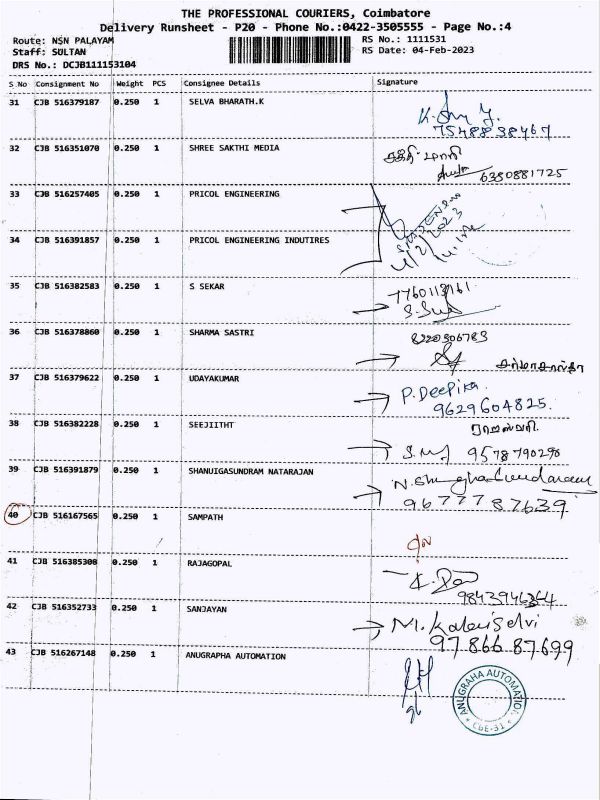 THE PROFESSIONAL COURIERS, Coimbatore
Delivery Runsheet - P20 - Phone No.:0422-3505555 - Page No.:4
Route: NSN PALAYAM
RS No.: 1111531
Staff: SULTAN
RS Date: 04-Feb-2023
DRS No.: DCJB111153104
S.No Consignment No Weight PCS Consignee Details Signature
31 CJB 516379187 0.250 1 SELVA BHARATH.K
7548838467
32 CJB 516351070 0.250 1 SHREE SAKTHI MEDIA
6380881725
33 CJB 516257405 0.250 1 PRICOL ENGINEERING
34 CJB 516391857 0.250 1 PRICOL ENGINEERING INDUTIRES
4/2/2023
35 CJB 516382583 0.250 1 S SEKAR
36 CJB 516378860 0.250 1 SHARMA SASTRI
8220306783
37 CJB 516379622 0.250 1 UDAYAKUMAR
P. Deepika
9629604825.
38 CJB 516382228 0.250 1 SEEJIITHT
ராஜேஸ்வரி
9578790298
39 CJB 516391879 0.250 1 SHANUIGASUNDRAM NATARAJAN
9677787639
40 CJB 516167565 0.250 1 SAMPATH
41 CJB 516385308 0.250 1 RAJAGOPAL
42 CJB 516352733 0.250 1 SANJAYAN
M. Kalaiselvi
9786687699
43 CJB 516267148 0.250 1 ANUGRAPHA AUTOMATION
ANUGRAHA AUTOMATION
CBE-31